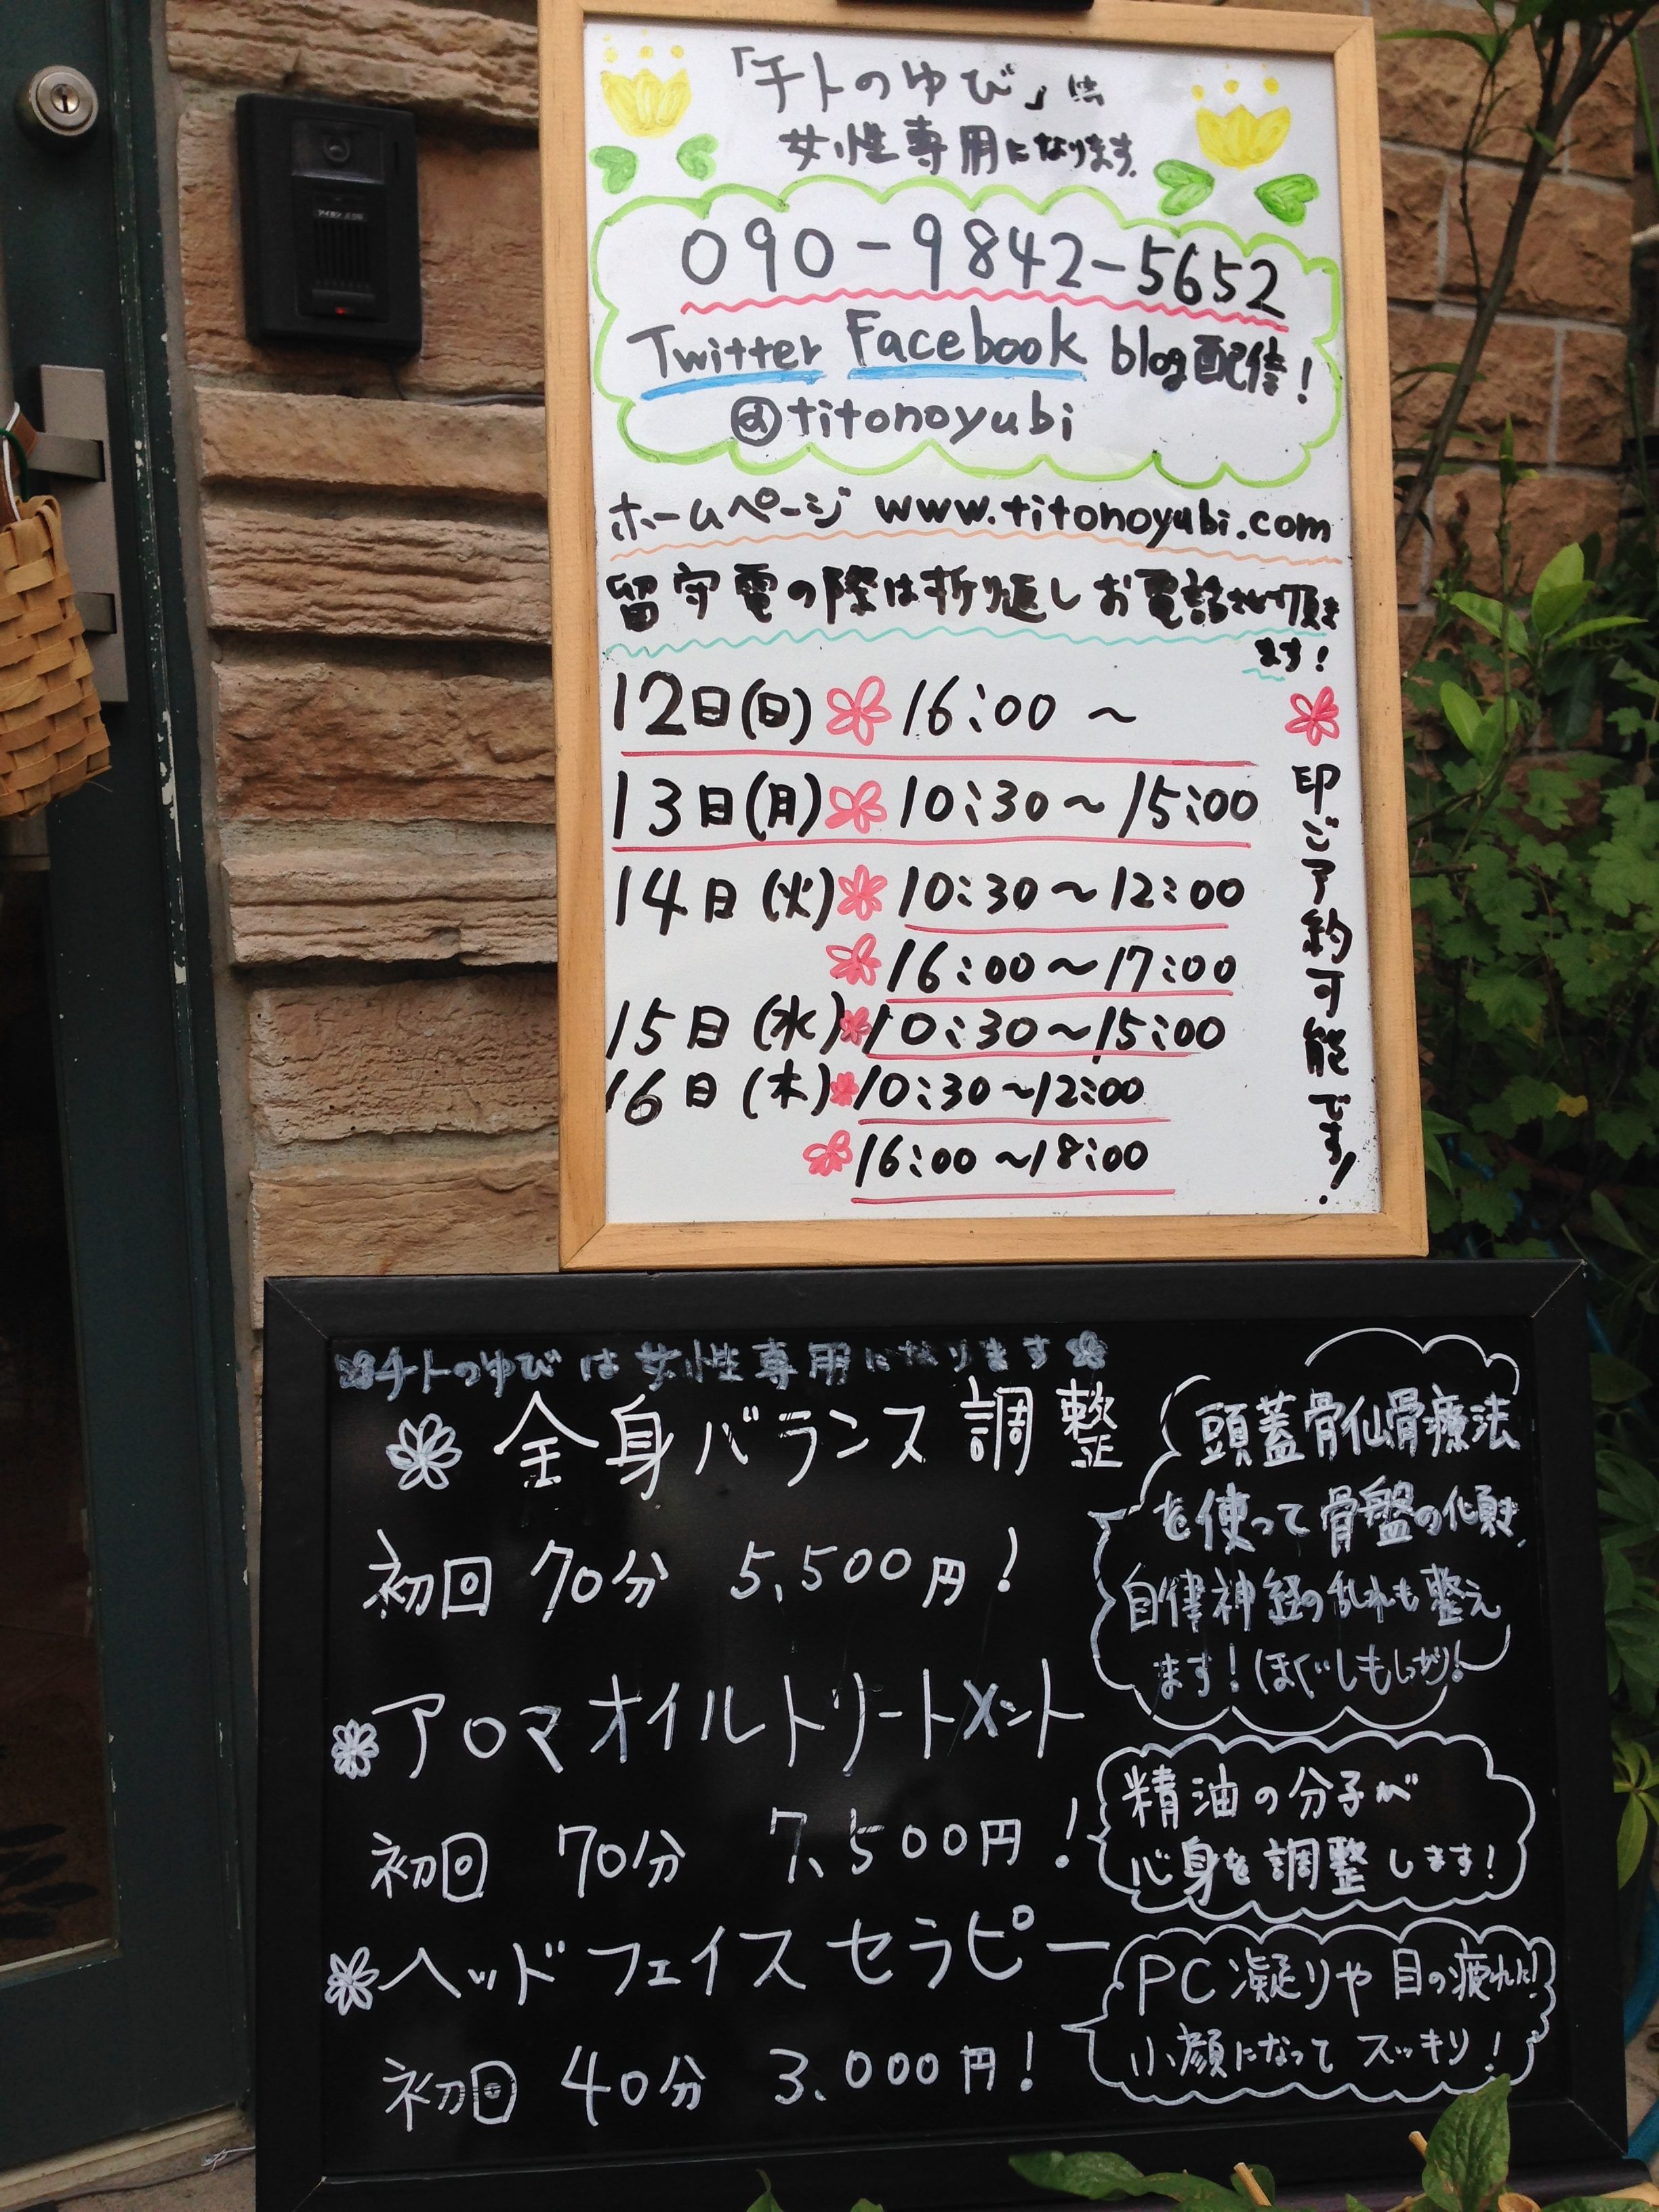 「チトのゆび」は
女性専用になります。
090-9842-5652
Twitter Facebook blog配信!
@titonoyubi
ホームページ www.titonoyubi.com
留守電の際は折り返しお電話させて頂き
ます!
12日(日) 16:00 ~
13日(月) 10:30~15:00
14日(火) 10:30~12:00
16:00~17:00
15日(水) 10:30~15:00
16日(木) 10:30~12:00
16:00~18:00
印ご予約可能です!
チトのゆびは女性専用になります
全身バランス調整
初回 70分 5,500円!
頭蓋骨仙骨療法
を使って骨盤の傾き
自律神経の乱れも整え
ます!ほぐしもしっかり!
アロマオイルトリートメント
初回 70分 7,500円!
精油の分子が
心身を調整します!
ヘッドフェイスセラピー
初回 40分 3.000円!
PC凝りや目の疲れに!
小顔になってスッキリ!